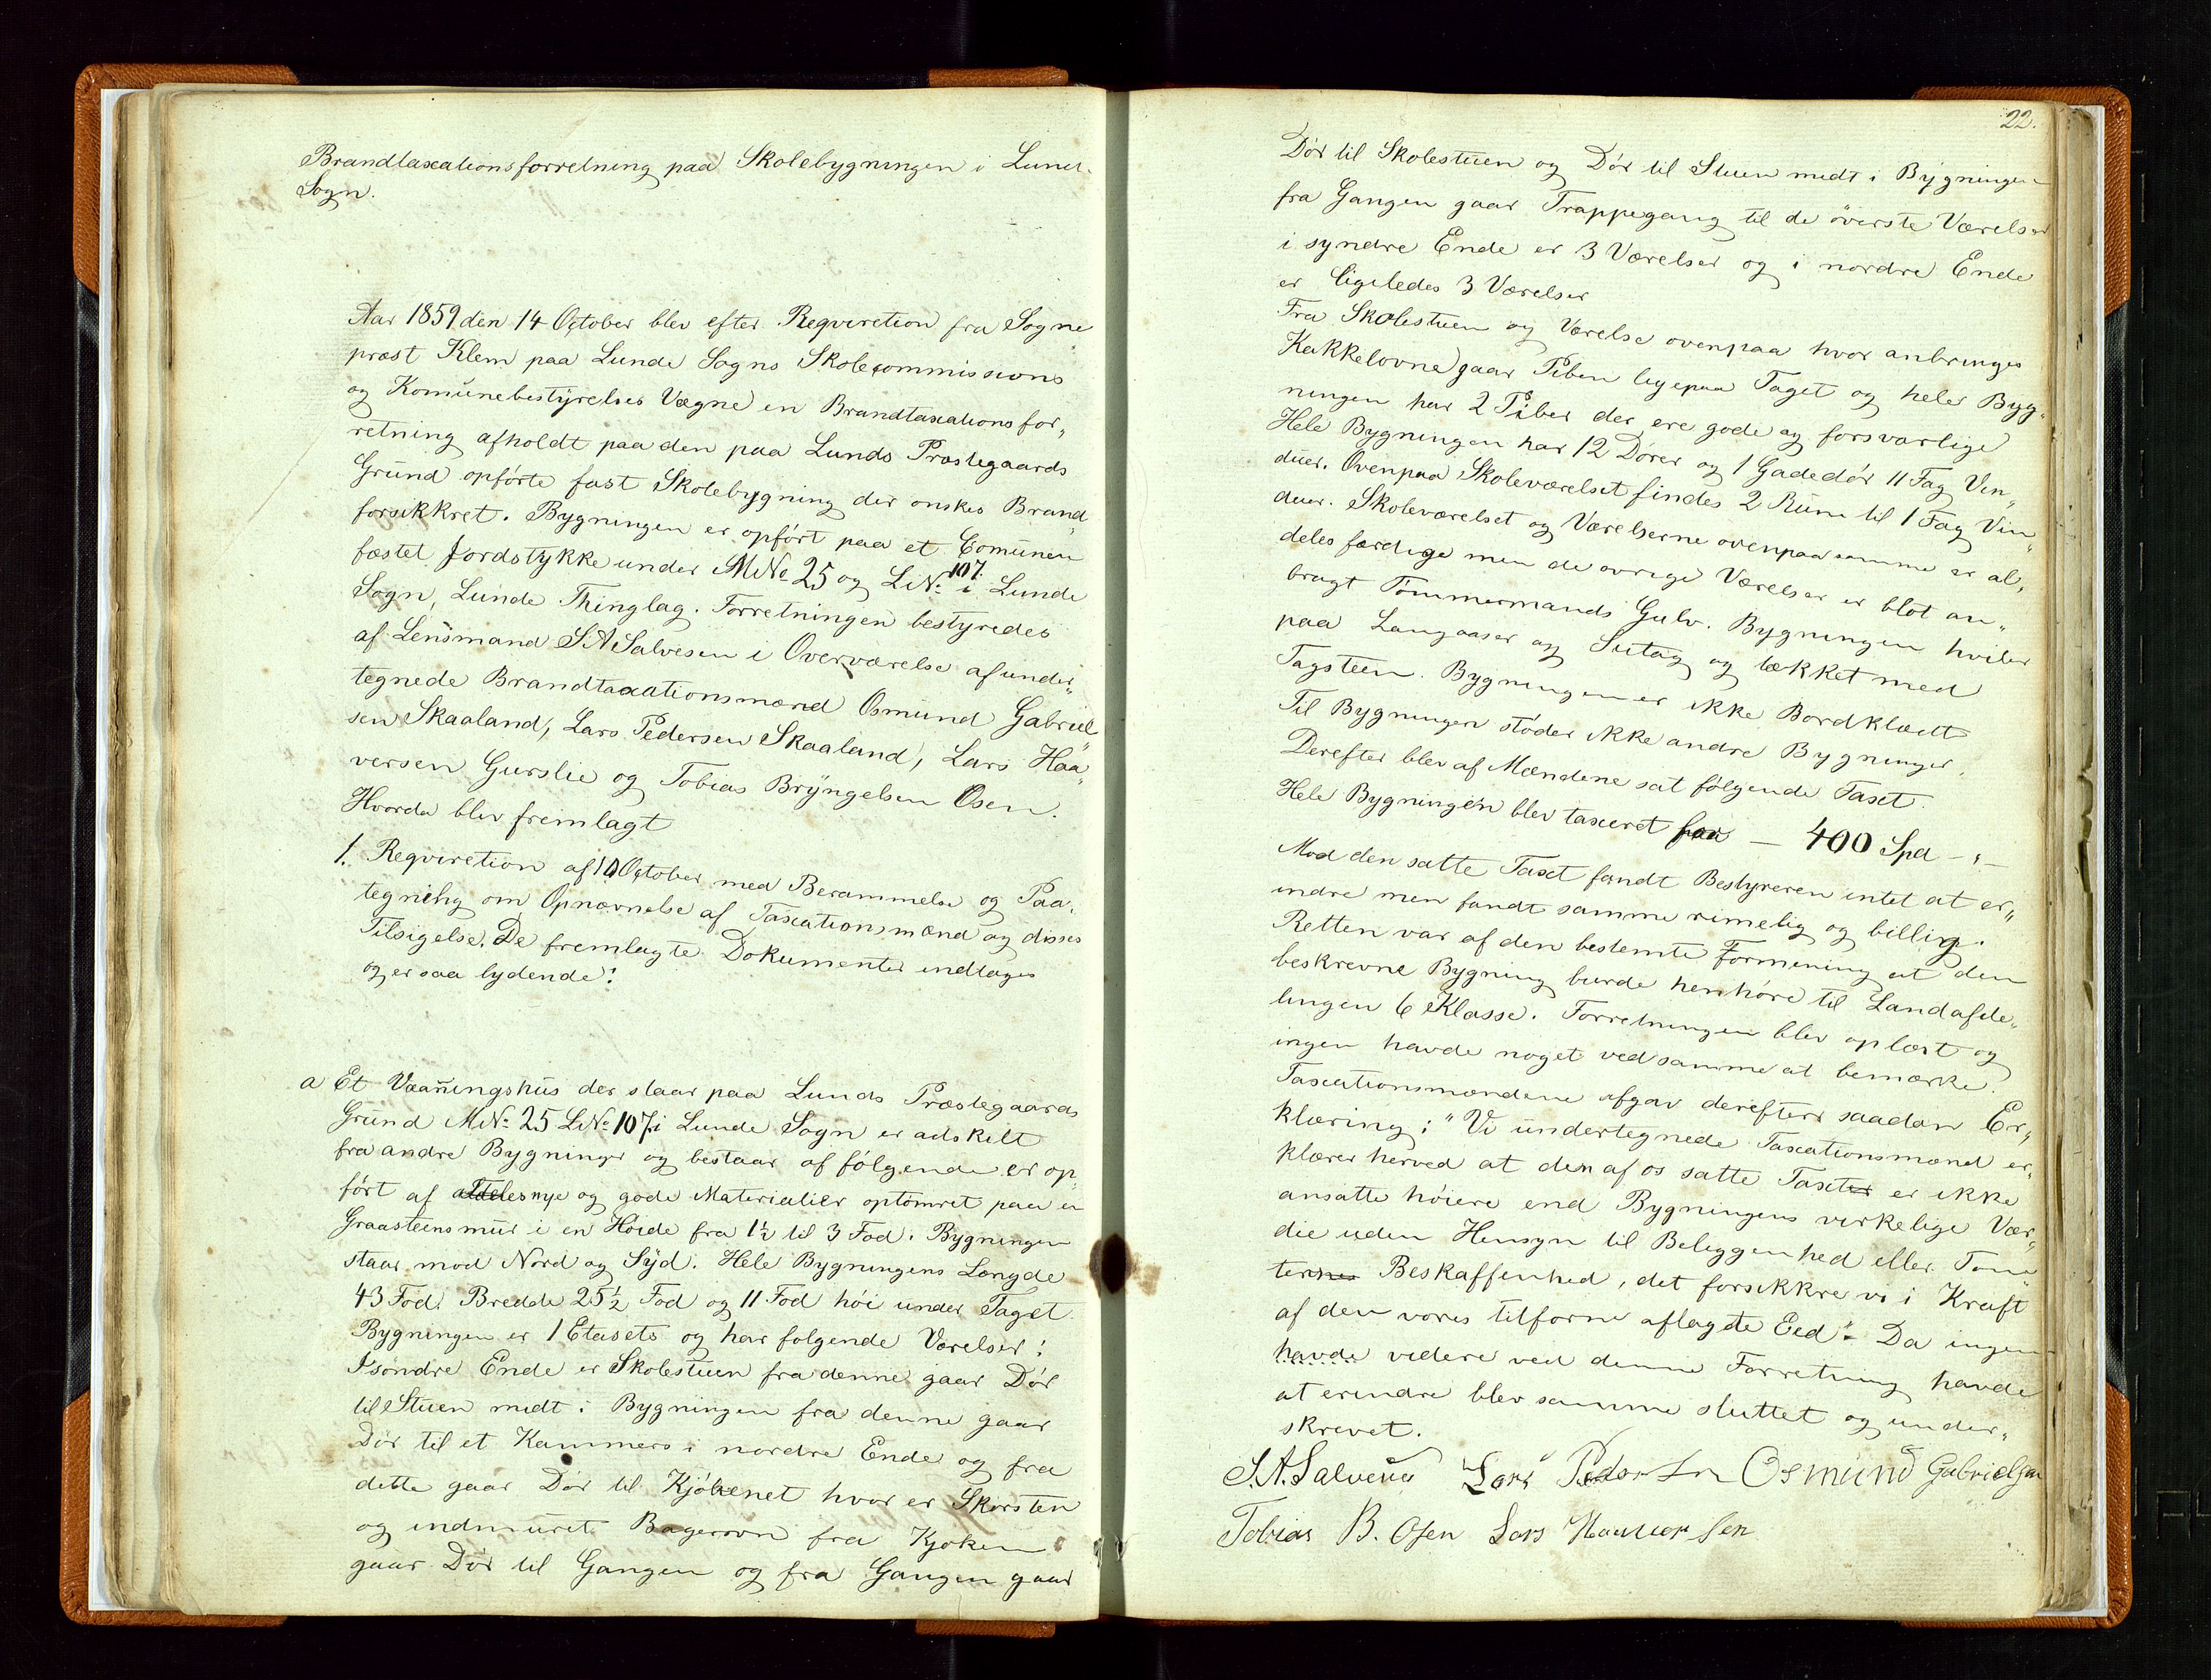 Brandtaxationsforretning paa Skolebygningen i Lund
Sogn.
Aar 1859 den 14 October blev efter Reqviretion fra Sogne
præst Klem paa Lunde Sogns Skolecommissions
og Komünebestÿrelses Vegne en Brandtaxationsfor„
retning afholdt paa den paa Lunds Præstegaards
Gründ opførte fast Skolebygning der onskes Brand„
forsikkret. Bygningen er opført paa et Comünen
fæstet Jordstykke under MNo 25 og LNo 107 i Lunde
Sogn, Lunde Thinglag. Forretningen bestyredes
af Lensmand S A Salvesen i Overværelse af under„
tegnede Brandtaxationsmænd Osmünd Gabriel
sen Skaaland, Lars Pedersen Skaaland, Lars Haa„
versen Gurslie og Tobias Brÿngelsen Osen.
Hvorda blev fremlagt
1. Reqviretion af 10 October med Berammelse og Paa„
tegning om Opnævnelse af Taxationsmænd og disses
Tilsigelse. De fremlagte Dokumenter indtages
og er saa lydende:
a Et Vaaningshüs der staar paa Lunds Præstegaards
Gründ MNo 25 LNo 107 i Lunde Sogn er adskilt
fra andre Bygninger og bestaar af følgende er op„
ført af aldeles nye og gode Materialier optømret paa en
Graasteensmür i en Høide fra 1½ til 3 Fod. Bygningen
staar mod Nord og Sÿd. Hele Bygningens Længde
43 Fod. Bredde 25½ Fod og 11 Fod høi under Taget
Bygningen er 1 Etasets og har følgende Værelser:
I søndre Ende er Skolestuen fra denne gaar Dør
til Stuen midt i Bygningen fra denne gaar
Dør til et Kammers i nordre Ende og fra
dette gaar Dør til Kjøkenet hvor er Skorsten
og indmüret Bagerovn fra Kjøken
gaar Dør til Gangen og fra Gangen gaar
22.
Dør til Skolestuen og Dør til Stuen midt i Bÿgningen
fra Gangen gaar Trappegang til de øverste Værelser
i syndre Ende er 3 Værelser og i nordre Ende
er ligeledes 3 Værelser
Fra Skolestuen og Værelse ovenpaa hvor anbringes
Kakkelovne gaar Piben ligepaa Taget og heler Byg„
ningen har 2 Piber der ere gode og forsvarlige
Hele Bygningen har 12 Dører og 1 Gadedør 11 Fag Vin„
duer. Ovenpaa Skoleværelset findes 2 Rüm til 1 Fag Vin„
duer. Skoleværelset og Værelserne ovenpaa samme er al„
deles færdige men de øvrige Værelser er blot an„
bragt Tømmermands Gulv. Bygningen hviler
paa Langaaser og Sutag og tækket med
Tagsteen. Bygningen er ikke Bordklædt
Til Bygningen støder ikke andre Bygninger.
Derefter blev af Mændene sat følgende Taxt.
Hele Bygningen blev taxeret for — 400 Spd - „ -
Mod den satte Taxt fandt Bestyreren intet at er„
indre men fandt samme rimelig og billig.
Retten var af den bestemte Formening at den
beskrevne Bygning burde henhøre til Landafde„
lingen 6 Klasse. Forretningen blev oplæst og
ingen havde noget ved samme at bemærke.
Taxationsmændene afgav derefter saadan Er„
klæring: "Vi ündertegnede Taxationsmænd er„
klærer herved at den af os satte Taxter er ikke
ansatte høiere end Bygningens virkelige Vær„
die uden Hensyn til Beliggenhed eller Tom„
ternes Beskaffenhed, det forsikkre vi i Kraft
af den vores tilforne aflagte Eed". Da ingen
havde videre ved denne Forretning havde
at erindre blev samme sluttet og under„
skrevet.
S.A. Salvesen Lars Pedersen Osmünd Gabrielsen
Tobias B. Osen Lars Haaversen